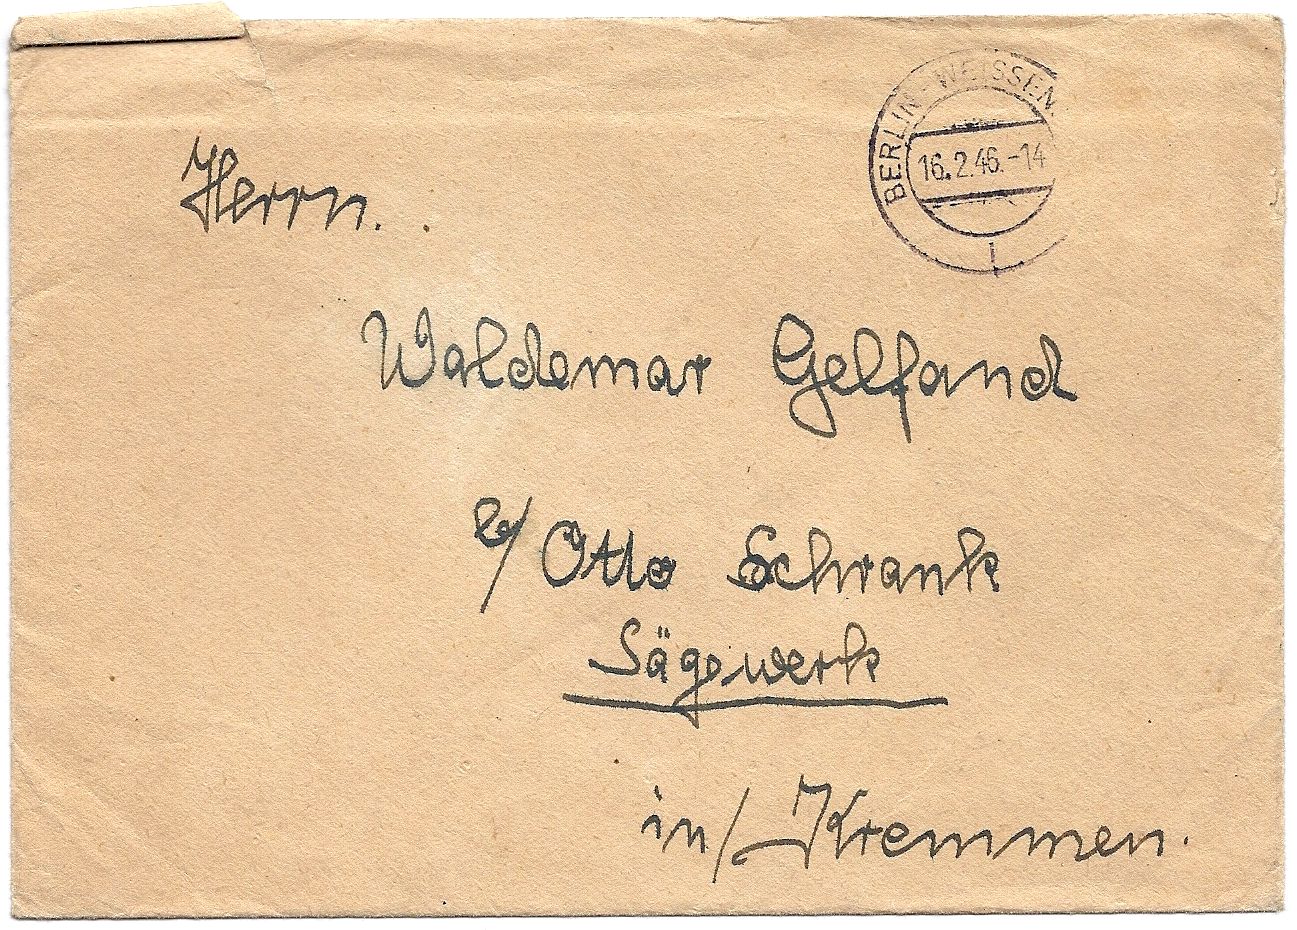 BERLIN-WEISSEN.
16.2.46.-14
Herrn.
Waldemar Gelfand
b/ Otto Schrank
Sägewerk
in/Kremmen.